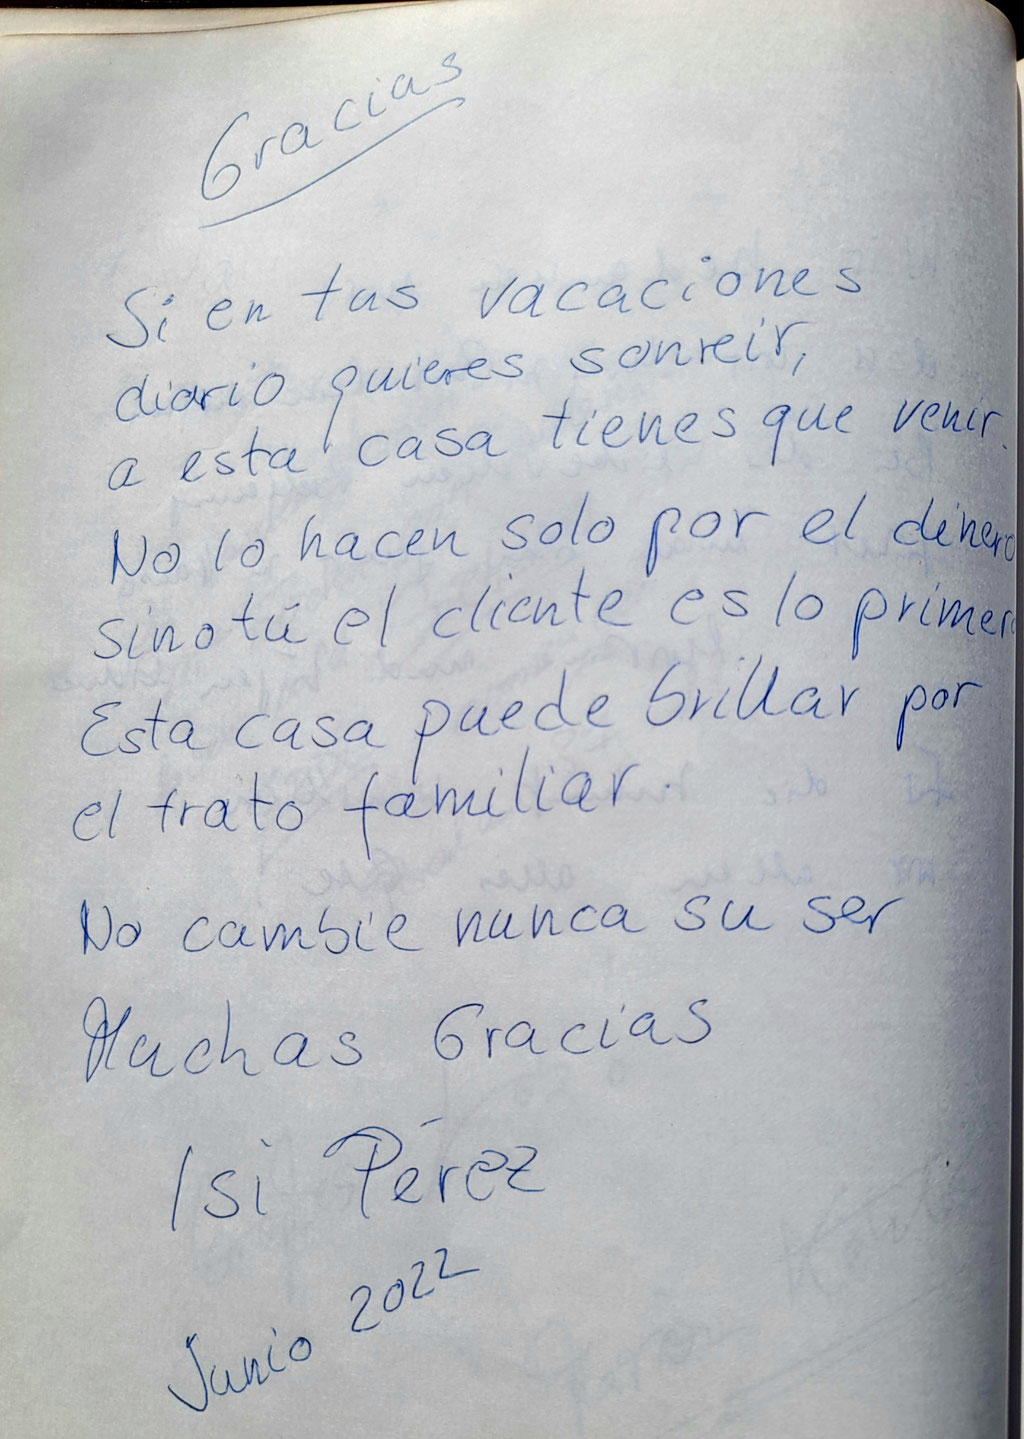 Gracias
Si en tus vacaciones
diario quieres sonreir,
a esta casa tienes que venir.
No lo hacen solo por el dinero
sino tú el cliente es lo primero
Esta casa puede brillar por
el trato familiar.
No cambie nunca su ser
Muchas Gracias
Isi Pérez
Junio 2022